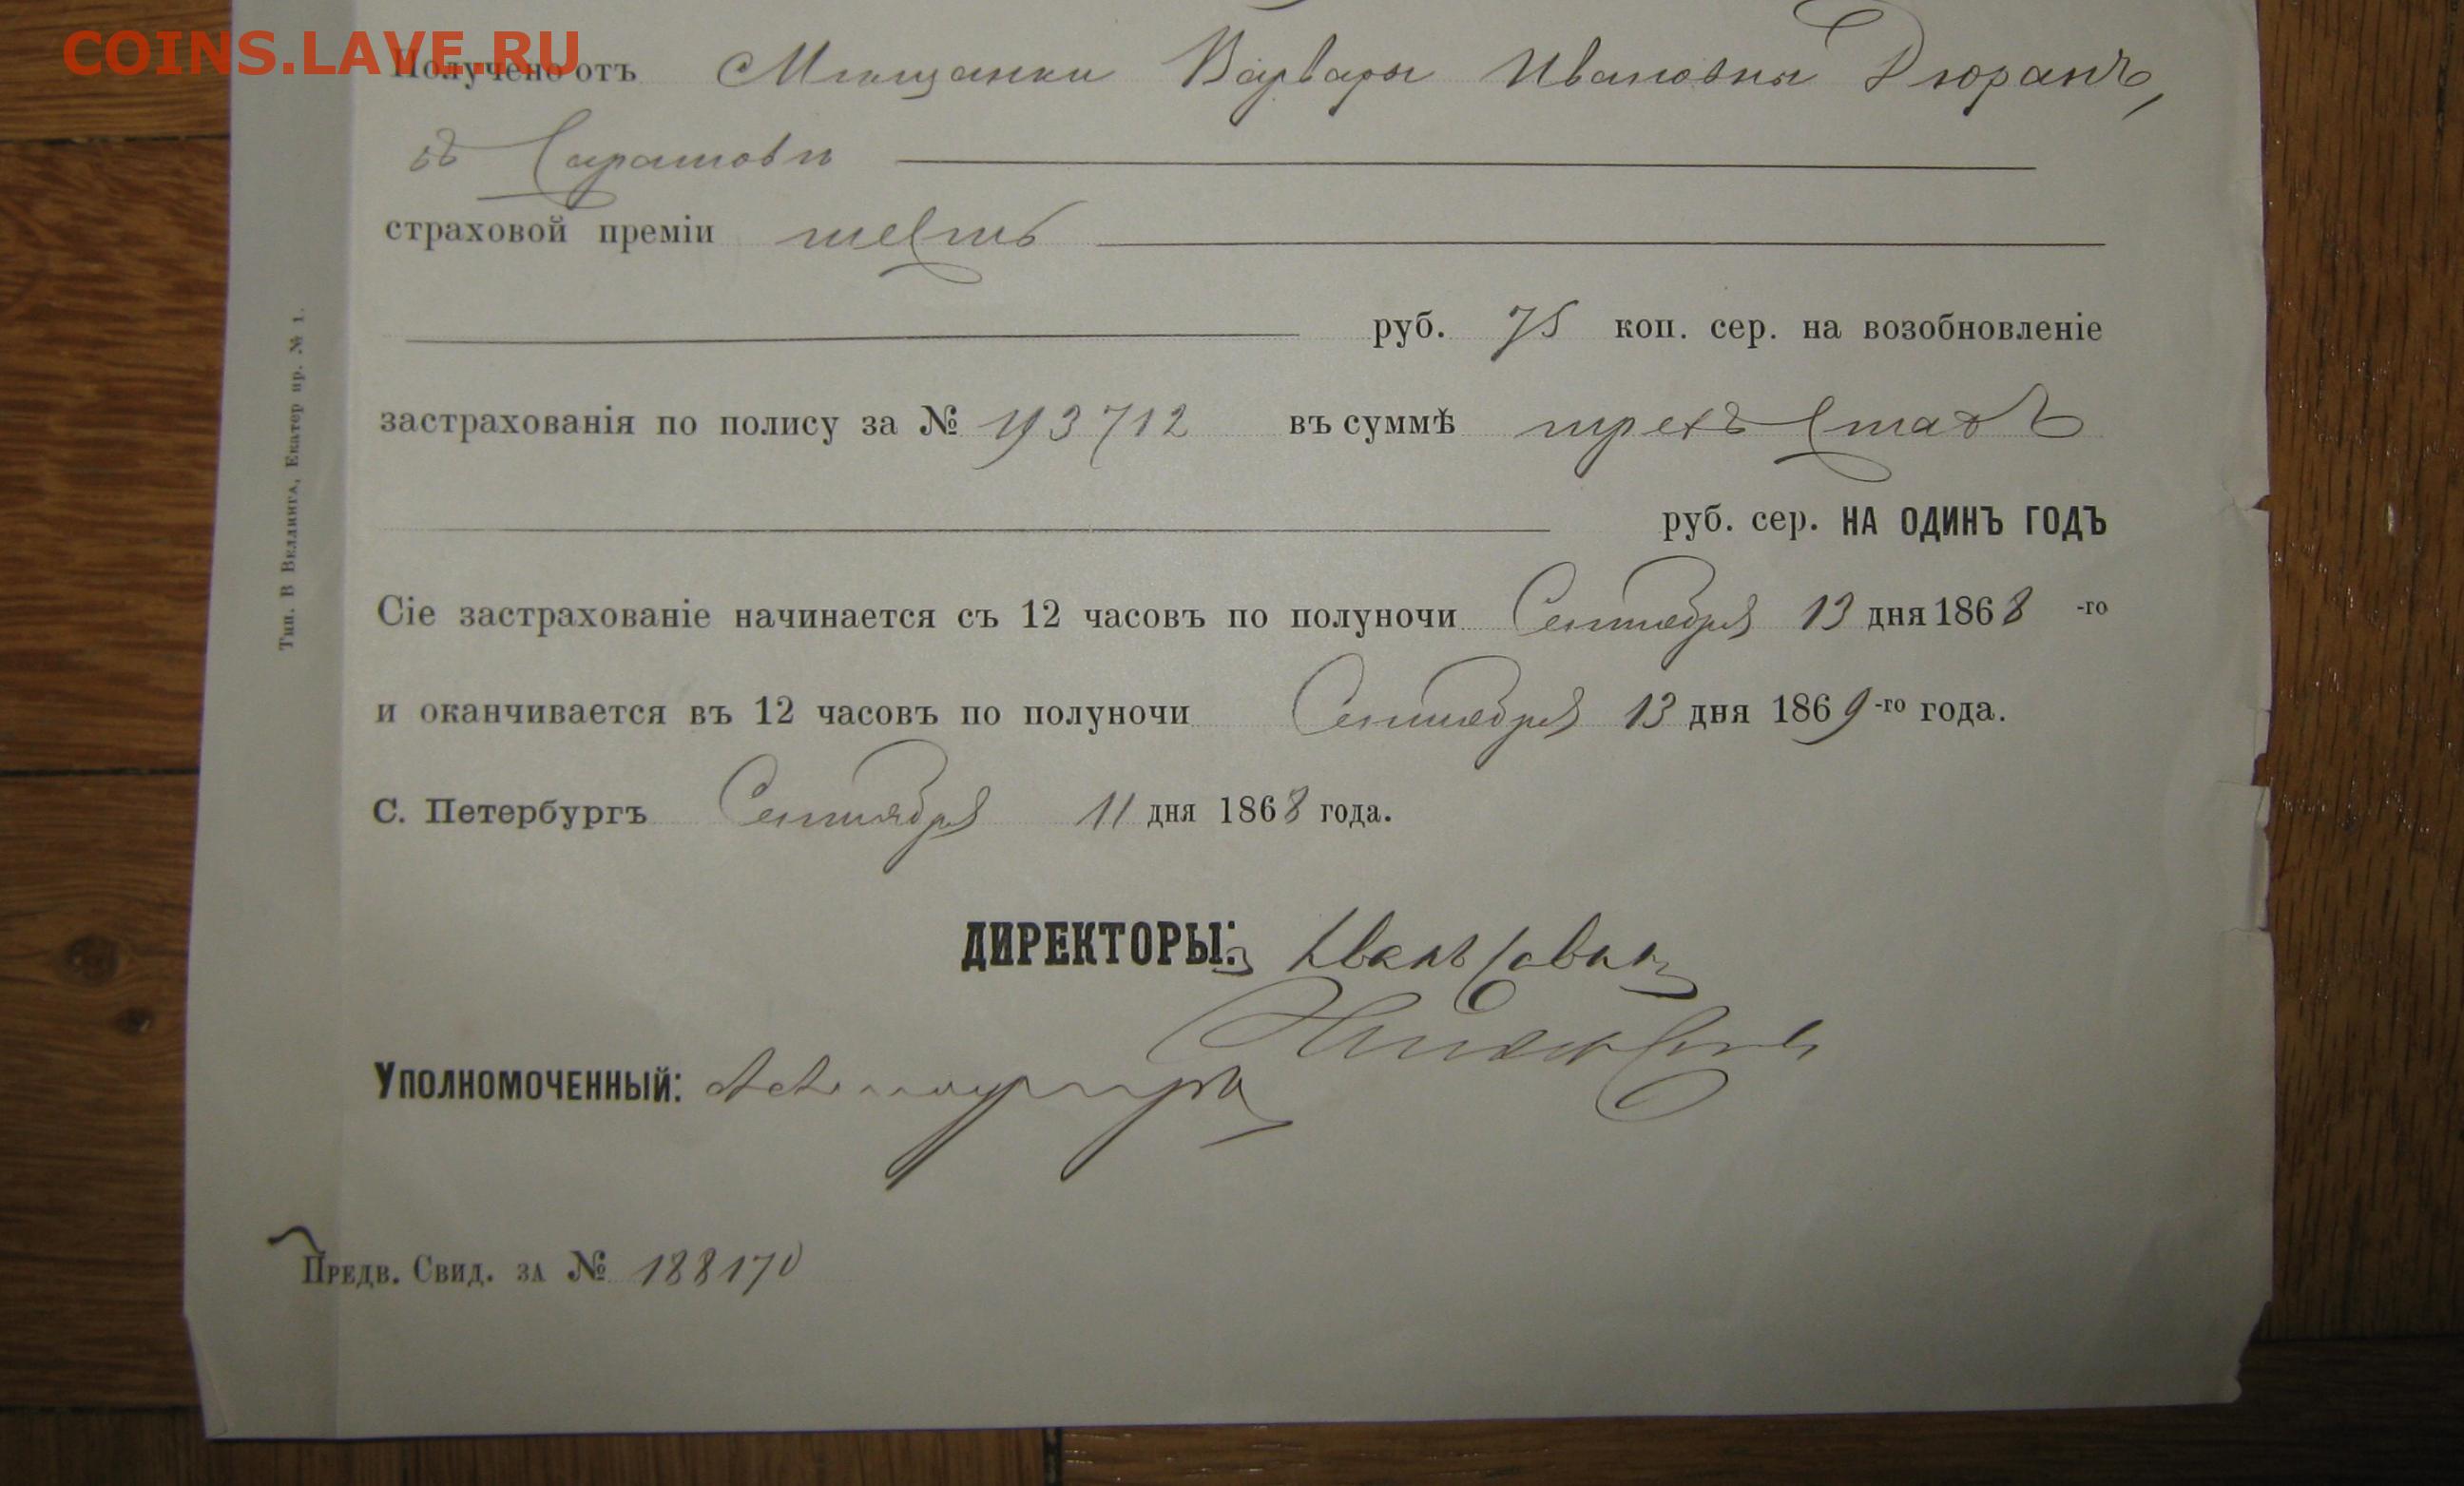 COINS.LAVE.RU
Получено отъ Мѣщанки Варвары Ивановны Дюранъ,
въ Саратовѣ
страховой преміи шесть
руб. 75 коп. сер. на возобновленіе
застрахованія по полису за № 193712 въ суммѣ трехъ стахъ
руб. сер. НА ОДИНЪ ГОДЪ
Сіе застрахованіе начинается съ 12 часовъ по полуночи Сентября 13 дня 1868 -го
и оканчивается въ 12 часовъ по полуночи Сентября 13 дня 1869-го года.
С. Петербургъ Сентября 11 дня 1868 года.
ДИРЕКТОРЫ:
УПОЛНОМОЧЕННЫЙ:
ПРЕДВ. СВИД. ЗА № 188170
Тип. В Веллинга, Екатер пр. № 1.